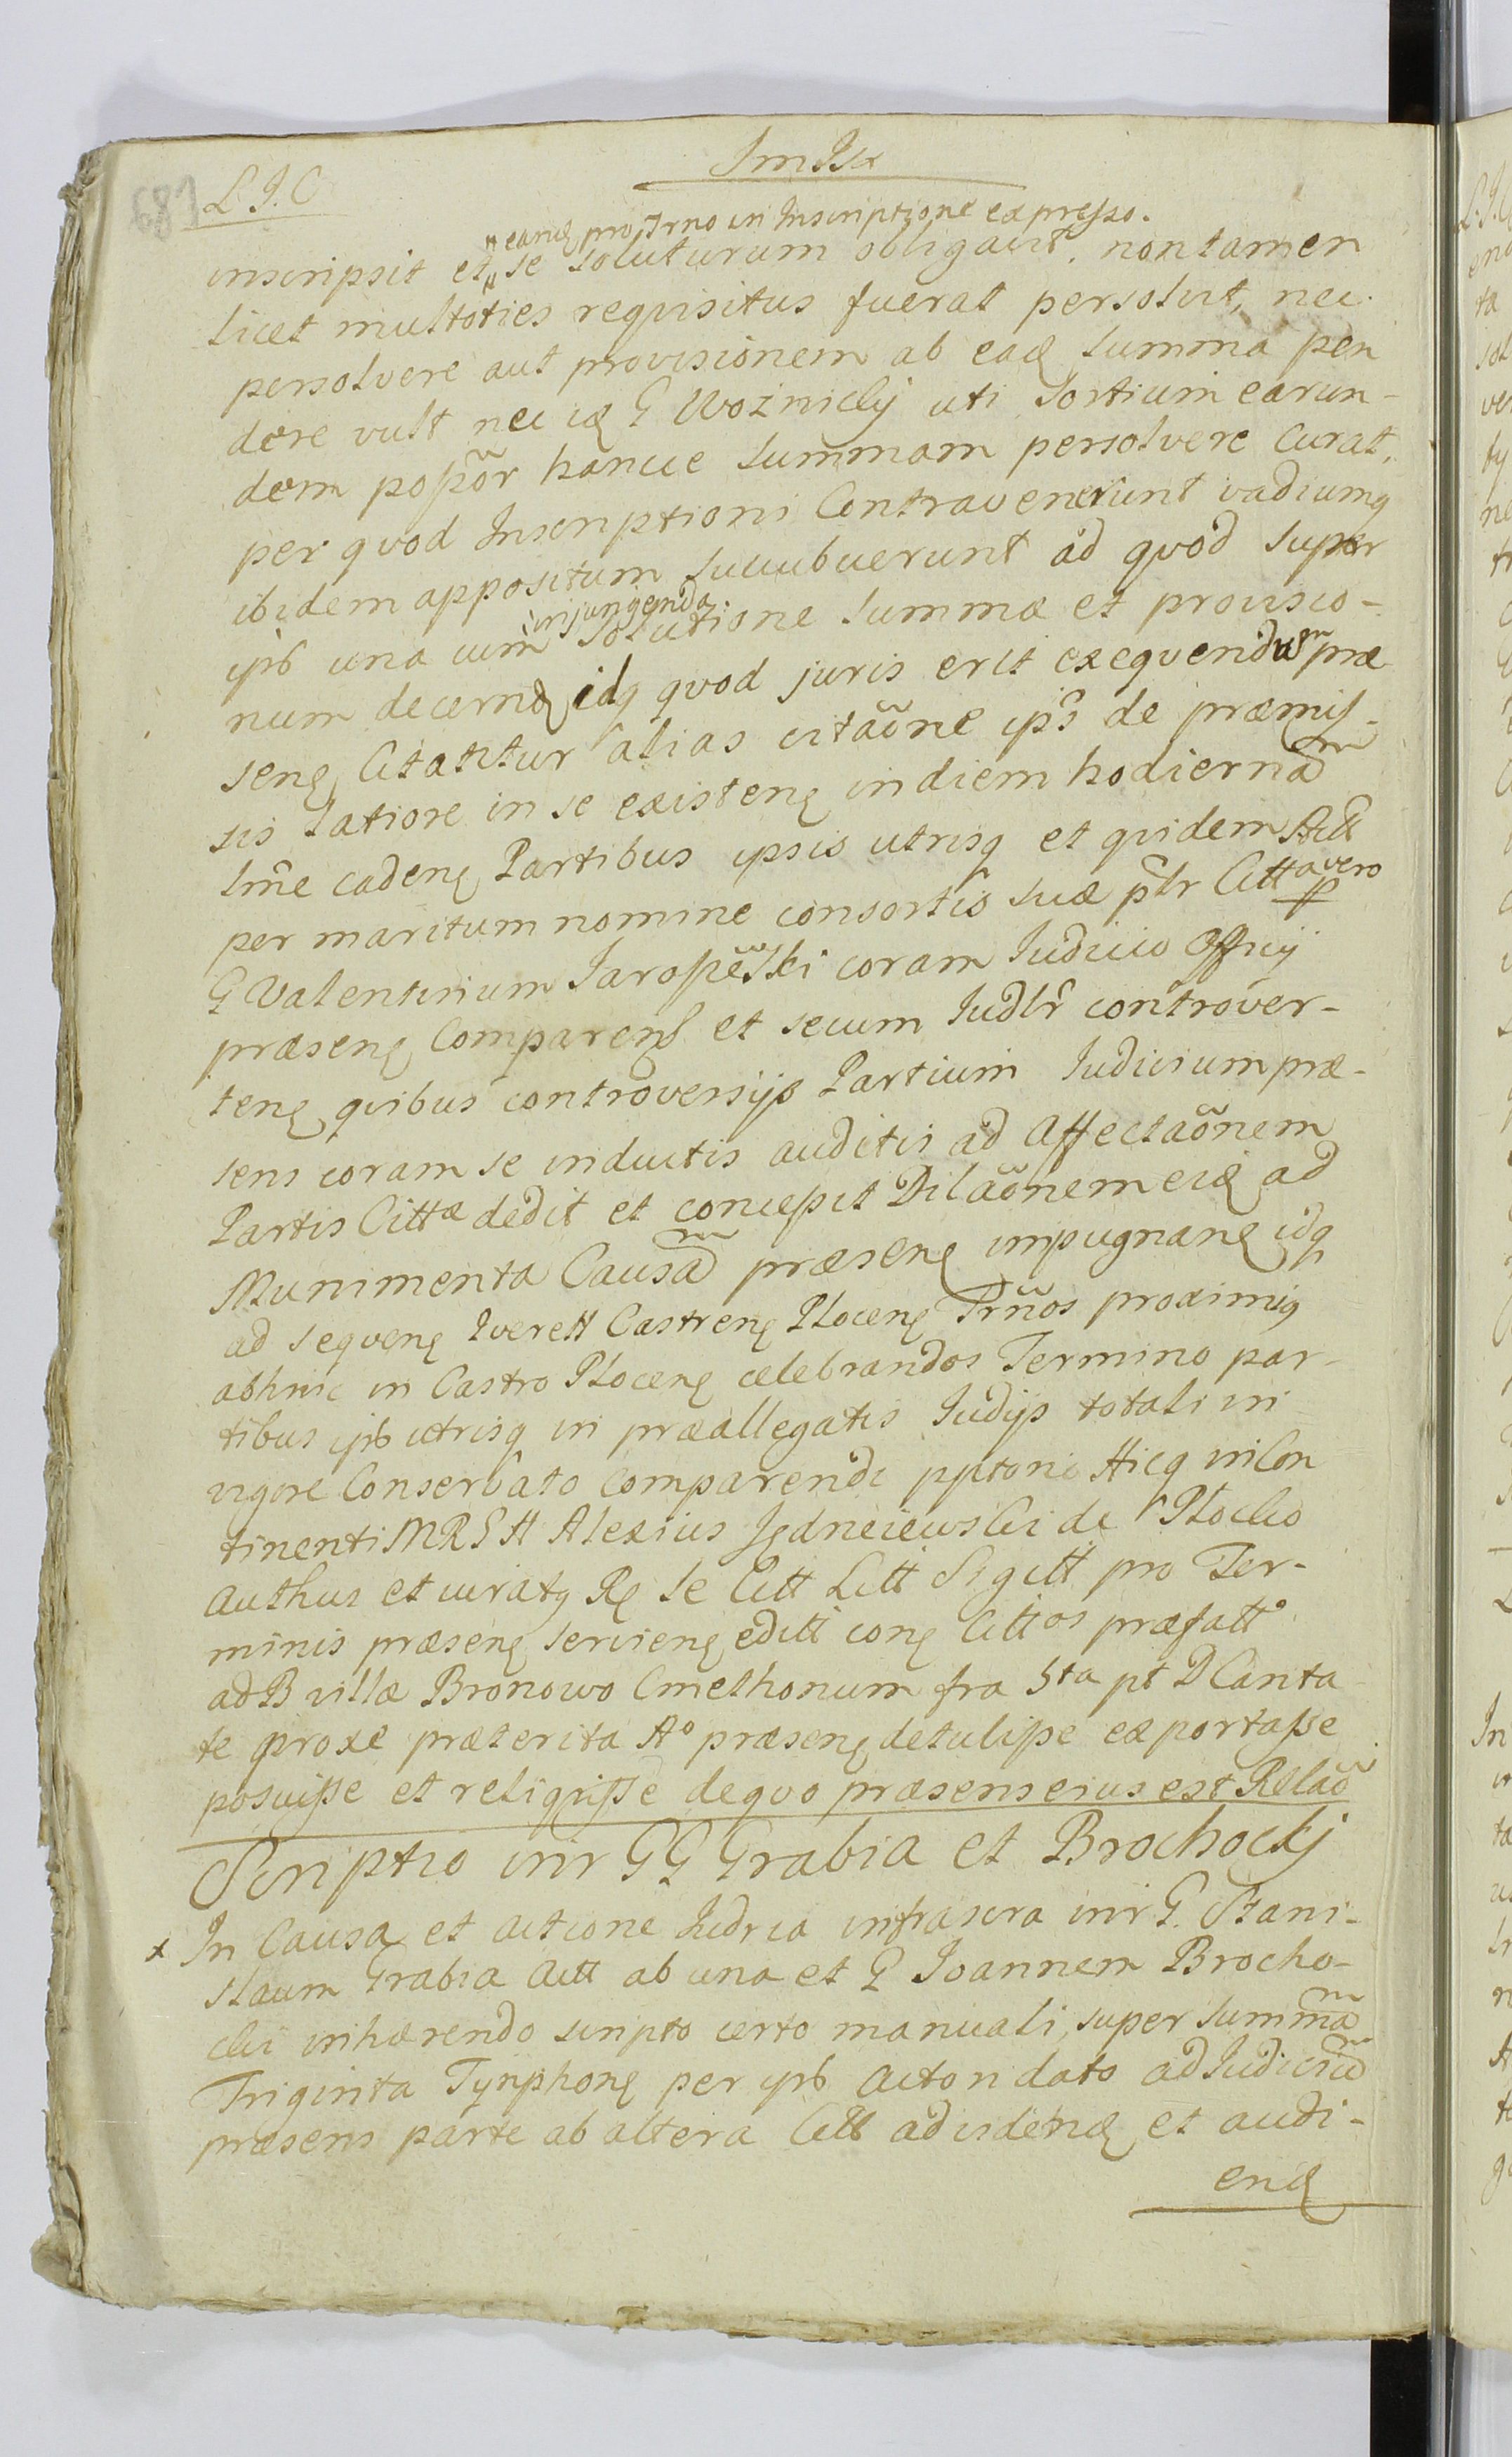 L. J. C
681
eand pro Trno in Inscriptione expresso.
inscripsit et se soluturum obligavit, non tamen
licet multoties requisitus fuerat persolvit, nec
persolvere aut provisionem ab ead summa pen
dere vult nec id G Woźnicky uti Sortium earun-
dem possor hancce summam persolvere curat,
per quod Inscriptioni Contravenerunt vadiumq
ibidem appositum succubuerunt ad quod super
injungenda
ips una cum solutione summæ et provisio-
num decernd idq quod juris erit exequendum præ
sens Citatitur alias citaone ips de præmis-
sis latiore in se existens in diem hodiernam
lme cadens Partibus ipsis utrisq et quidem Act
per maritum nomine consortis suæ plr Citta vero p
G Valentinium Jaroszewski coram Judicio Officij
præsens Comparens et secum Judlr controver-
tens quibus controversijs Partium Judicium præ-
sens coram se inductis auditis ad affectaonem
Partis Cittæ dedit et concepit Dilaonem eid ad
Munimenta Causam præsens impugnans idq
ad sequens Querell Castrens Plocens Trnos proximiq
abhinc in Castro Plocens celebrandos Termino par-
tibus ips utrisq in præallegatis Judijs totali in
vigore Conservato comparendi pptoni Hicq in Con
tinenti MRSH Alexius Jedneiewski de Plocko
authus et juratq Rg se Citt Litt Sigill pro Ter-
minis præsens serviens editt cong Cittos præfatt
ad B villæ Bronowo Cmethonum fra 5ta pt D Canta
te proxe præterita Ao præsens detulisse exportasse
posuisse et reliquisse de quo præsens eius est Relao
Scriptio inr GG Grabia et Brochockj
x In Causa et actione Judria infrascra inr G. Stani-
slaum Grabia Act ab una et G Joannem Brocho-
cki inhærendo scripto certo manuali super summam
Triginta Tynphons per ips Actori dato ad Judicium
præsens parte ab altera Citt ad videnď et audi-
end